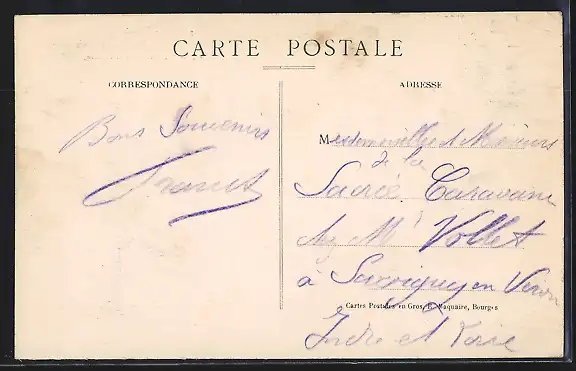 CARTE POSTALE
CORRESPONDANCE
ADRESSE
Bons Souvenirs
Mesdemoiselles et Messieurs
de la
Sacrée Caravane
chez Mr Vollet
à Savigny en Veron
Cartes Postales en Gros, E. Maquaire, Bourges
Indre et Loire